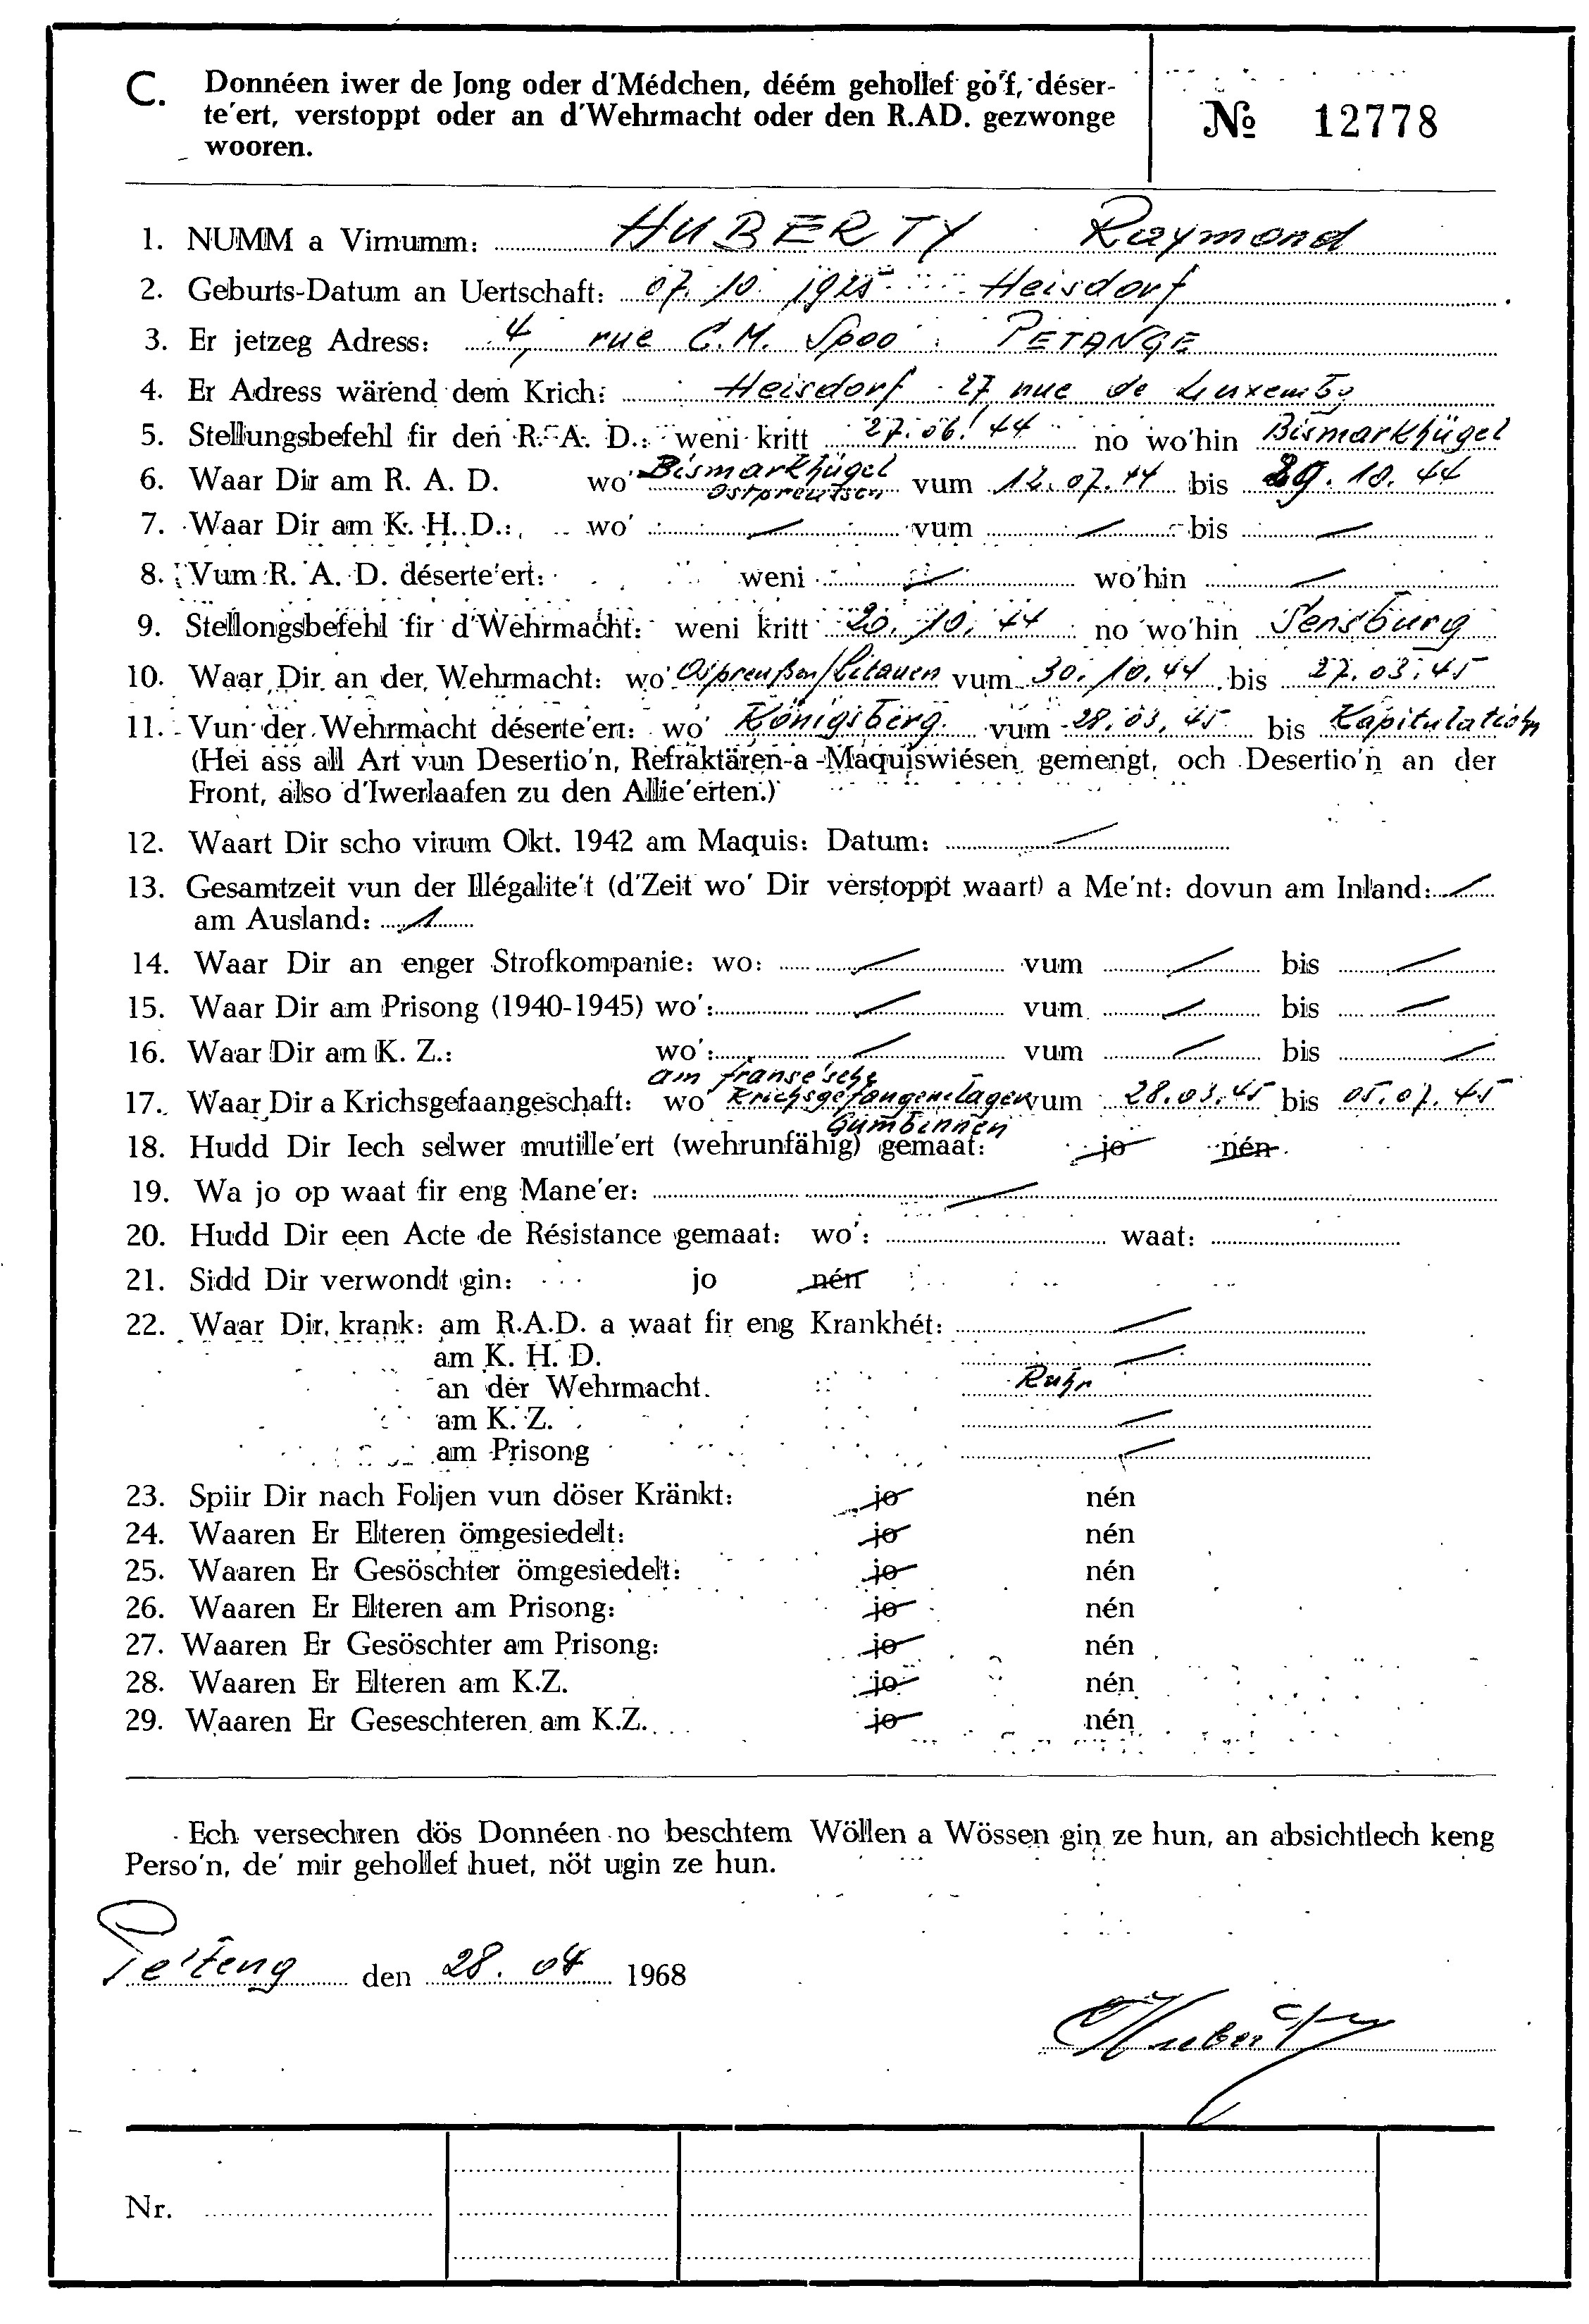 C. Donnéen iwer de Jong oder d'Médchen, déém gehollef go'f, déser-
te'ert, verstoppt oder an d'Wehrmacht oder den R.AD. gezwonge
wooren.
№ 12778
1. NUMM a Virnumm: HUBERTY Raymond
2. Geburts-Datum an Uertschaft: 07. 10. 1925 Heisdorf
3. Er jetzeg Adress: 4, rue C.M. Spoo PETANGE
4. Er Adress wärend dem Krich: Heisdorf 27 rue de Luxembg
5. Stellungsbefehl fir den R. A. D.: weni kritt 27. 06. 44 no wo'hin Bismarkhügel
6. Waar Dir am R. A. D. wo' Bismarkhügel Ostpreutsen vum 12. 07. 44 bis 29. 10. 44
7. Waar Dir am K. H. D.: wo' vum bis
8. Vum R. A. D. déserte'ert: weni wo'hin
9. Stellongsbefehl fir d'Wehrmacht: weni kritt 20. 10. 44 no wo'hin Sensburg
10. Waar Dir an der Wehrmacht: wo' Ospreußen/Litauen vum 30. 10. 44 bis 27. 03. 45
11. Vun der Wehrmacht déserte'ert: wo' Königsberg vum 28. 03. 45 bis Kapitulation
(Hei ass all Art vun Desertio'n, Refraktären-a-Maquiswiésen gemengt, och Desertio'n an der
Front, also d'Iwerlaafen zu den Allie'erten.)
12. Waart Dir scho virum Okt. 1942 am Maquis: Datum:
13. Gesamtzeit vun der Illégalite't (d'Zeit wo' Dir verstoppt waart) a Me'nt: dovun am Inland:
am Ausland: 1
14. Waar Dir an enger Strofkompanie: wo: vum bis
15. Waar Dir am Prisong (1940-1945) wo': vum bis
16. Waar Dir am K. Z.: wo': vum bis
am franse'sche
17. Waar Dir a Krichsgefaangeschaft: wo' Krichsgefangenelager vum 28. 03. 45 bis 05. 07. 45
Gumbinnen
18. Hudd Dir Iech selwer mutille'ert (wehrunfähig) gemaat: jo nén
19. Wa jo op waat fir eng Mane'er:
20. Hudd Dir een Acte de Résistance gemaat: wo': waat:
21. Sidd Dir verwondt gin: jo nén
22. Waar Dir krank: am R.A.D. a waat fir eng Krankhét:
am K. H. D.
an der Wehrmacht. Ruhr
am K. Z.
am Prisong
23. Spiir Dir nach Foljen vun döser Kränkt: jo nén
24. Waaren Er Elteren ömgesiedelt: jo nén
25. Waaren Er Gesöschter ömgesiedelt: jo nén
26. Waaren Er Elteren am Prisong: jo nén
27. Waaren Er Gesöschter am Prisong: jo nén
28. Waaren Er Elteren am K.Z. jo nén
29. Waaren Er Geseschteren am K.Z. jo nén
Ech versechren dös Donnéen no beschtem Wöllen a Wössen gin ze hun, an absichtlech keng
Perso'n, de' mir gehollef huet, nöt ugin ze hun.
Pe'teng den 28. 04 1968
Huberty
Nr.